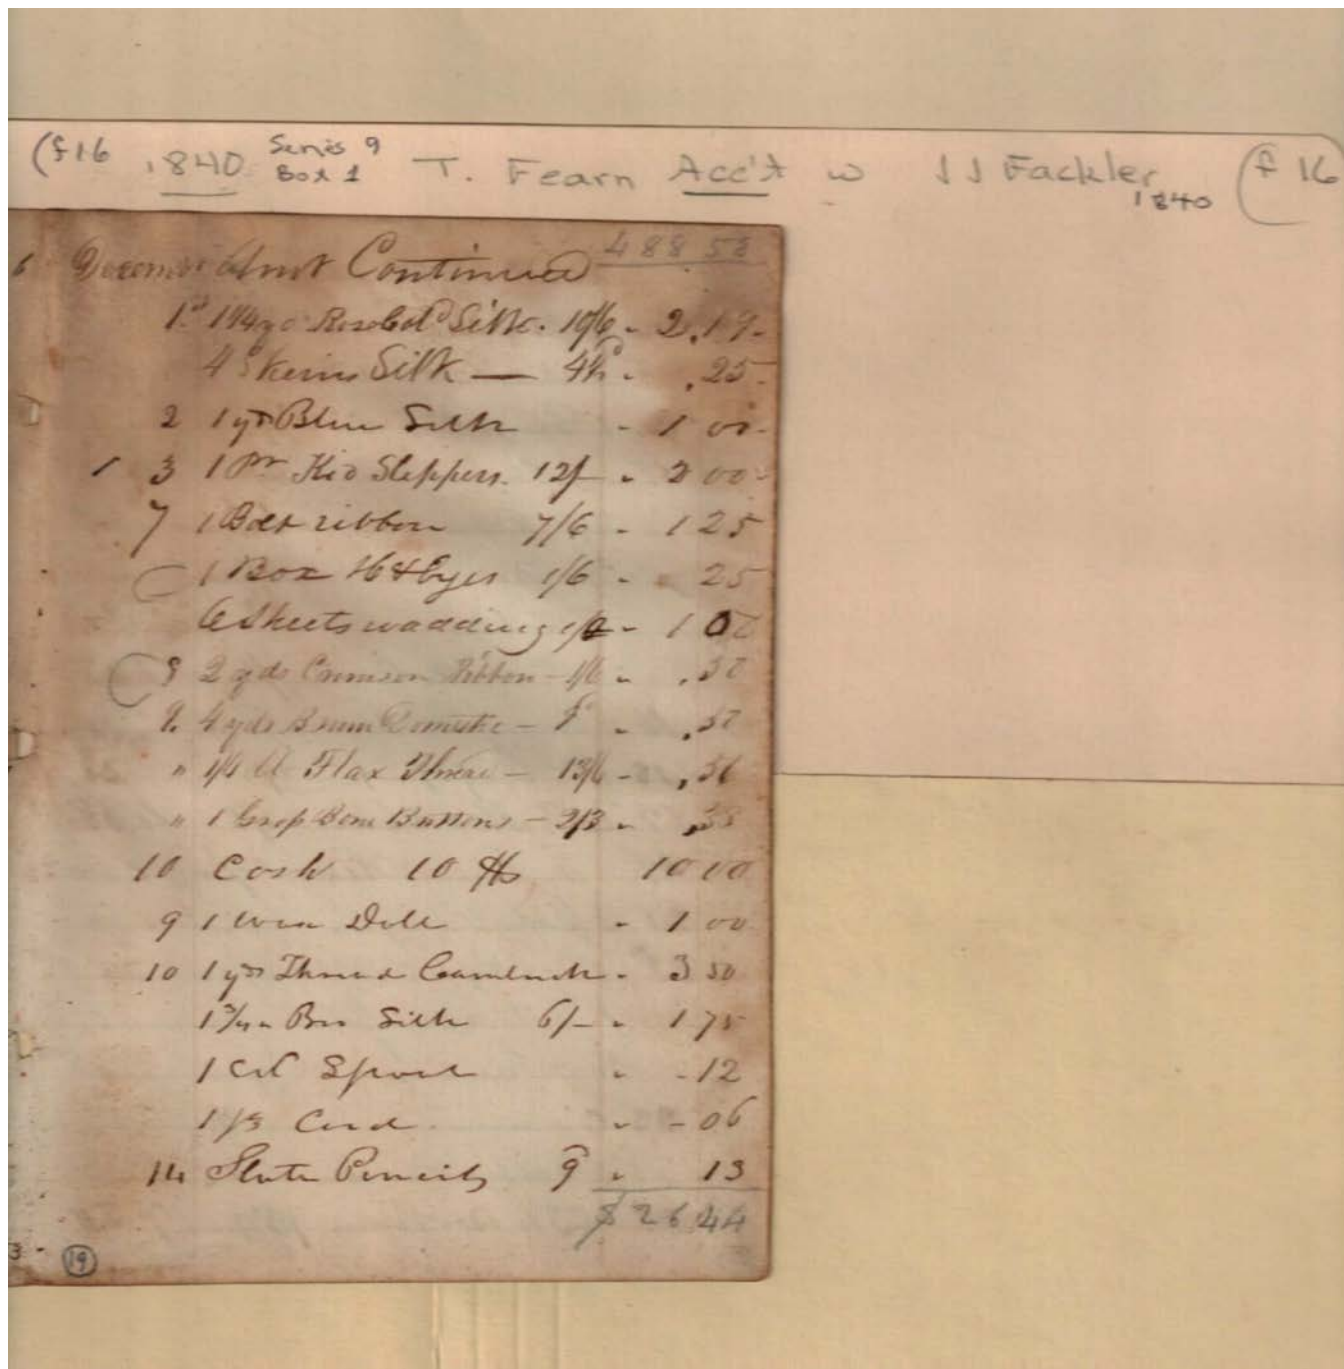 (f16 1840 Series 9 Box 1 T. Fearn Acc't w J J Fackler 1840 (f 16
6 December Amt Continued 488 58
1st 1 1/4 yd Silk. 10/6 - 2.19-
4 Skeins Silk — 4½ - .25-
2 1 yd Blue Silk - 1 00-
1 3 1 Pr Kid Slippers. 12/- - 2 00-
7 1 Bolt ribbon 7/6 - 1 25
1 Box H & Eyes 1/6 - 25
6 Sheets wadding 1/ - 1 00
8 2 yds Crimson Ribbon - 1/6 - .50
9. 4 yds Domestic - 9 - .50
" 1/4 lb Flax Thread - 13/6 - .56
" 1 Bone Buttons - 2/3 - .38
10 Cash 10 $ 10 00
9 1 Wax Doll - 1 00
10 1 yd Thread Cambrick - 3 50
1 3/4 Silk 6/- - 1 75
1 - -12
1 Cord. - -06
14 Slate Pencils 9 - 13
$ 26 44
3 - 19